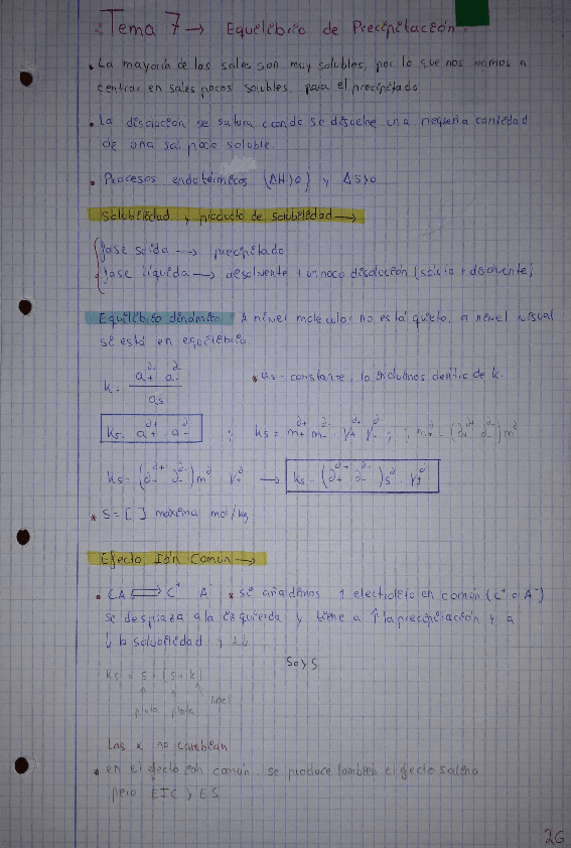 Tema 7 → Equilibrio de Precipitación.
• La mayoría de las sales son muy solubles, por lo que nos vamos a
centrar en sales pocos solubles, para el precipitado
• La disolución se satura cuando se disuelve una pequeña cantidad
de una sal poco soluble.
• Procesos endotérmicos (ΔH>0) y ΔS>0
Solubilidad y producto de solubilidad →
fase sólida → precipitado
fase líquida → disolvente + disolución (soluto + disolvente)
Equilibrio dinámico: A nivel molecular no está quieto, a nivel visual
se está en equilibrio.
* as = constante, lo incluimos dentro de k.
* S = [ ] máxima mol/kg
Efecto Ión Común →
• CA ⇌ C⁺ A⁻ * si añadimos 1 electrolito en común (C⁺ o A⁻)
se desplaza a la izquierda y tiene a ↑ la precipitación y a
↓ la solubilidad
So > S
ks = s (s + k)
plata
Las k no cambian
* en el efecto ión común se produce también el efecto salino
pero EIC > ES
26